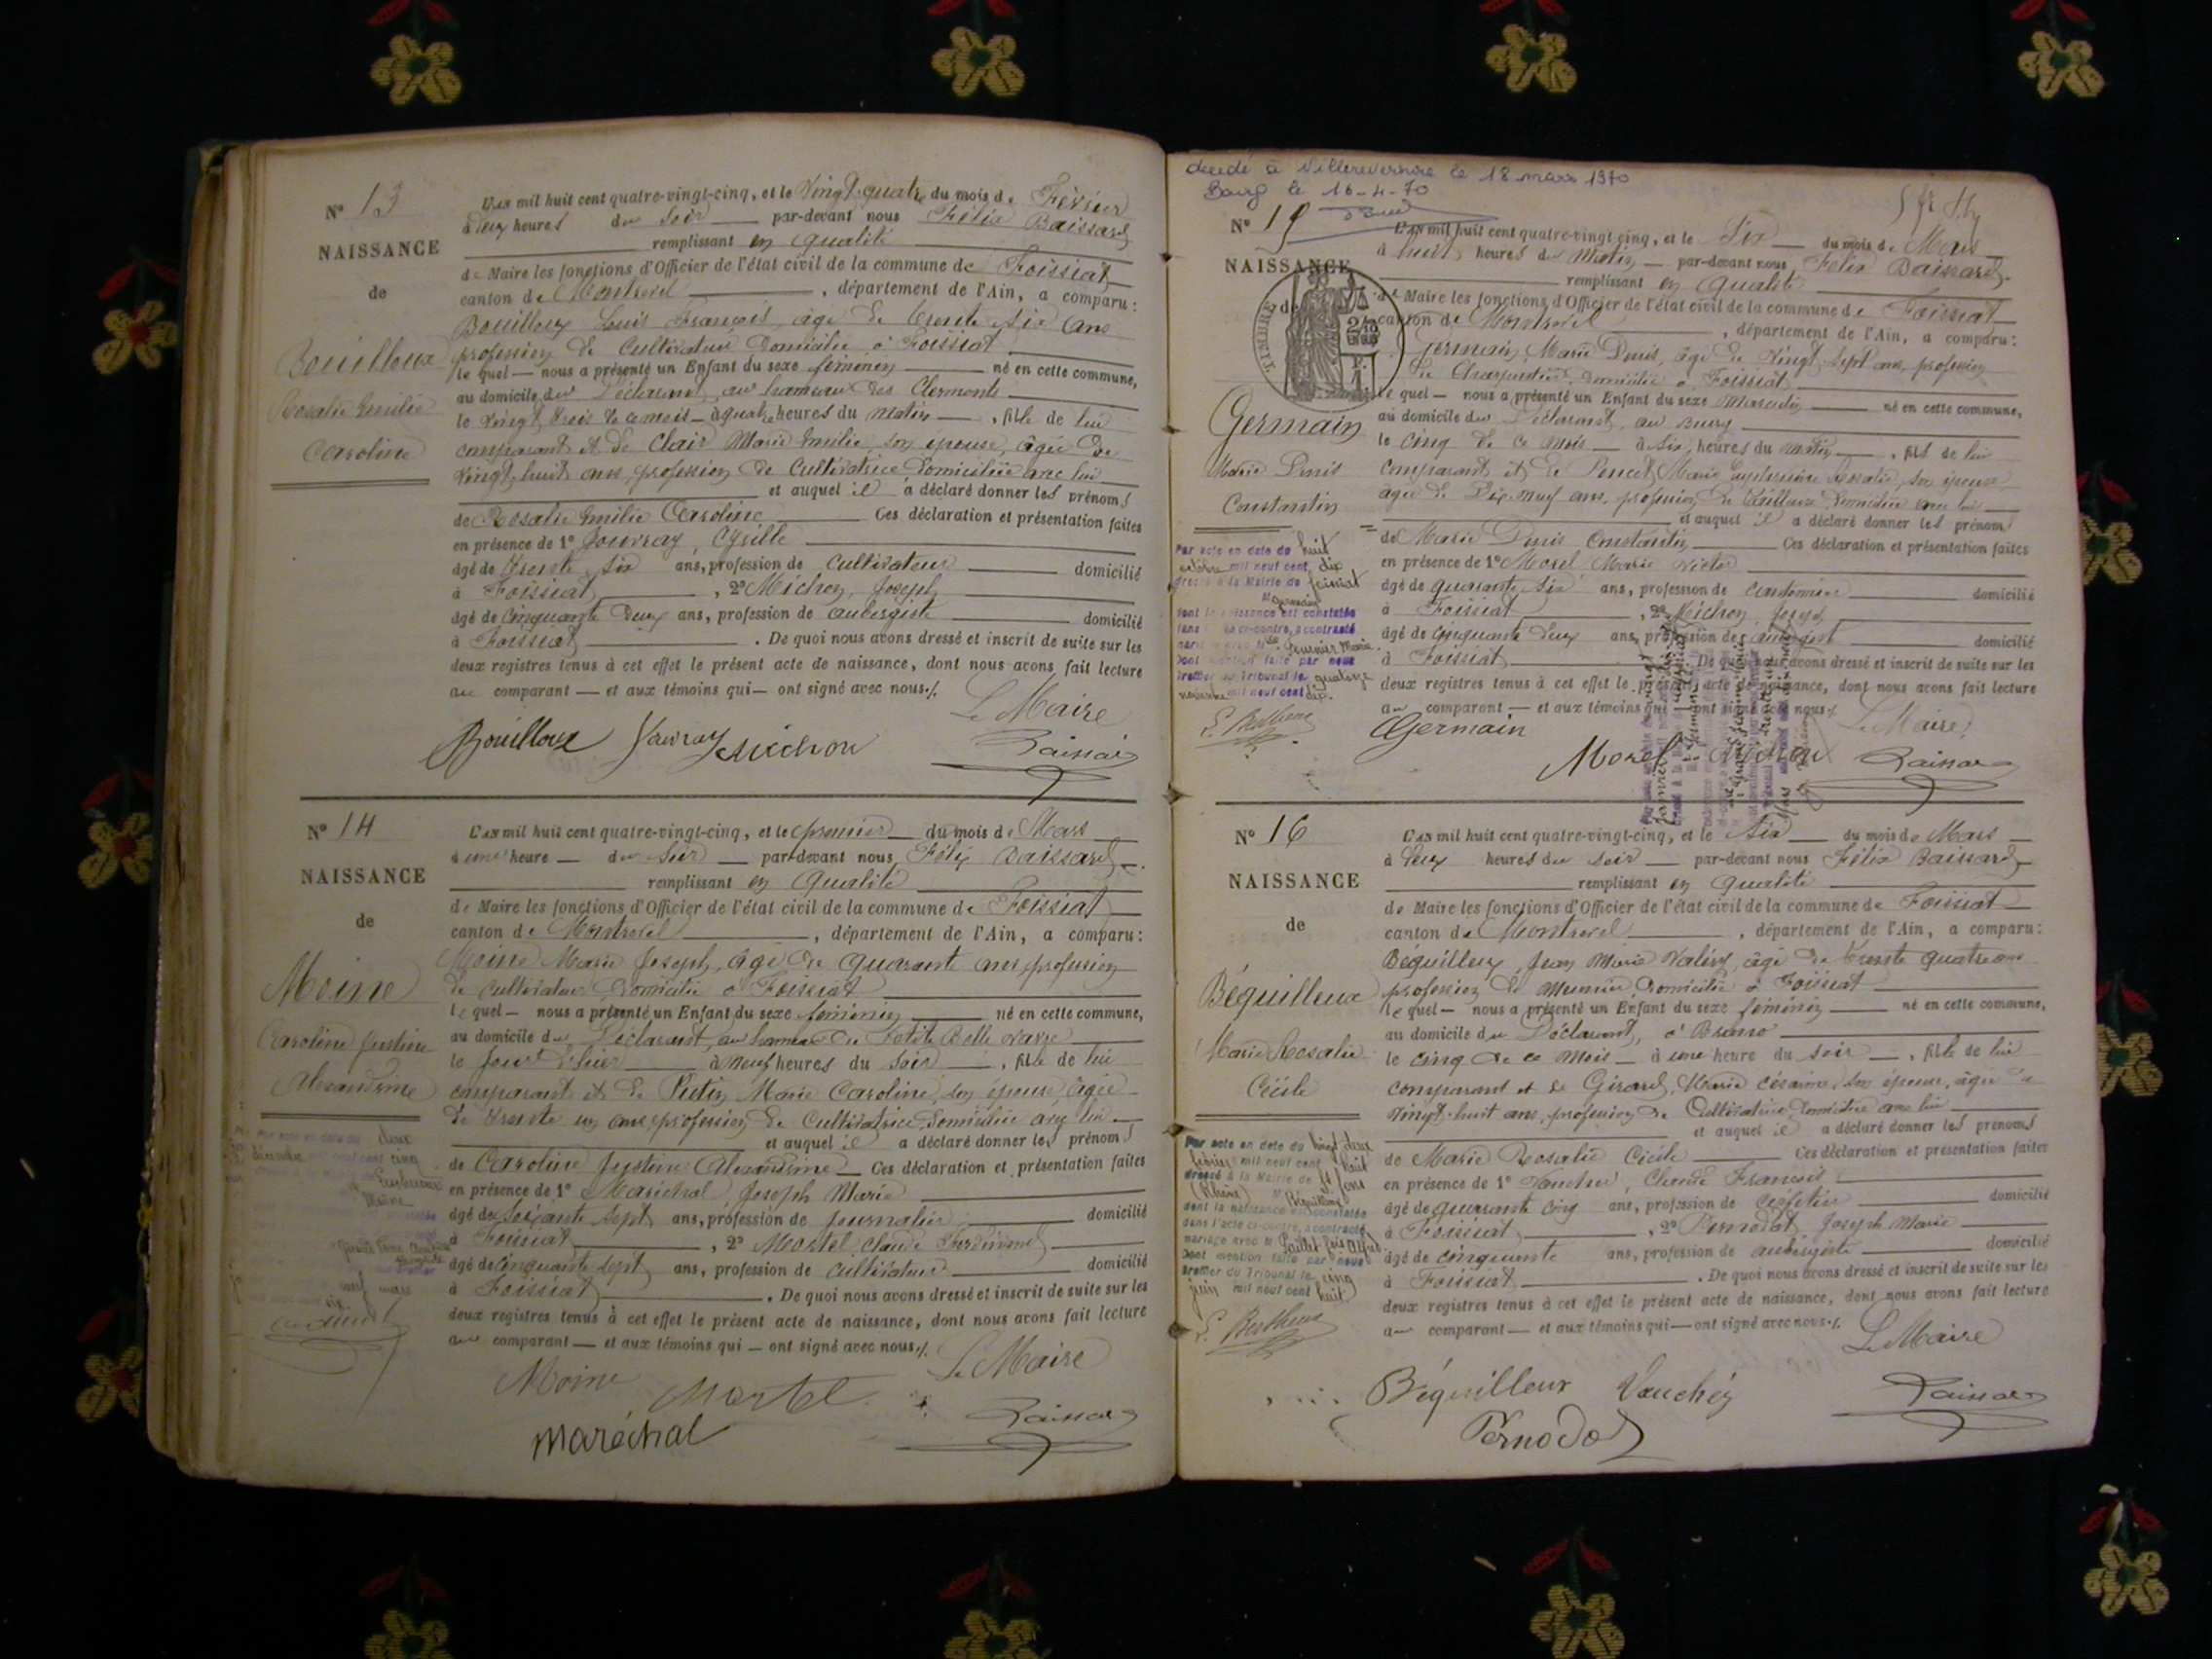 N° 13
NAISSANCE
de
Bouilloux
Rosalie Emilie
Caroline
L'an mil huit cent quatre-vingt-cinq, et le Vingt-quatre du mois de Février
à deux heures du Soir par-devant nous Félix Baissard
remplissant en qualité
de Maire les fonctions d'Officier de l'état civil de la commune de Foissiat
canton de Montrevel, département de l'Ain, a comparu:
Bouilloux Louis François, âgé de trente six ans
profession de Cultivateur domicilié à Foissiat
le quel nous a présenté un Enfant du sexe féminin né en cette commune,
au domicile du Déclarant, au hameau des Clermonts
le Vingt trois de ce mois à quatre heures du Matin, fille de lui
comparant et de Clair Marie Emilie, son épouse, âgée de
Vingt huit ans, profession de Cultivatrice domiciliée avec lui
et auquel il a déclaré donner les prénoms
de Rosalie Emilie Caroline Ces déclaration et présentation faites
en présence de 1° Jouvray, Cyrille
âgé de trente six ans, profession de Cultivateur domicilié
à Foissiat, 2° Michon, Joseph
âgé de Cinquante deux ans, profession de aubergiste domicilié
à Foissiat. De quoi nous avons dressé et inscrit de suite sur les
deux registres tenus à cet effet le présent acte de naissance, dont nous avons fait lecture
au comparant et aux témoins qui ont signé avec nous./.
Le Maire
Bouilloux Jouvray Michon Baissard
N° 14
NAISSANCE
de
Moine
Caroline Justine
Alexandrine
L'an mil huit cent quatre-vingt-cinq, et le premier du mois de Mars
à une heure du Soir par-devant nous Félix Baissard
remplissant en qualité
de Maire les fonctions d'Officier de l'état civil de la commune de Foissiat
canton de Montrevel, département de l'Ain, a comparu:
Moine Marie Joseph, âgé de quarante ans profession
de Cultivateur domicilié à Foissiat
le quel nous a présenté un Enfant du sexe féminin né en cette commune,
au domicile du Déclarant, au hameau de
le jour d'hier à neuf heures du Soir, fille de lui
comparant et de Putin Marie Caroline, son épouse, âgée
de trente un ans profession de Cultivatrice domiciliée avec lui
et auquel il a déclaré donner les prénoms
de Caroline Justine Alexandrine Ces déclaration et présentation faites
en présence de 1° Maréchal, Joseph Marie
âgé de soixante sept ans, profession de Journalier domicilié
à Foissiat, 2° Martel Claude Ferdinand
âgé de Cinquante sept ans, profession de Cultivateur domicilié
à Foissiat. De quoi nous avons dressé et inscrit de suite sur les
deux registres tenus à cet effet le présent acte de naissance, dont nous avons fait lecture
au comparant et aux témoins qui ont signé avec nous./.
Le Maire
Moine Martel
Maréchal Baissard
décédé à Villereversure le 18 mars 1970
Bourg le 16-4-70
N° 15
NAISSANCE
de
TIMBRE
Germain
Marie Denis
Constantin
L'an mil huit cent quatre-vingt cinq, et le Six du mois de Mars
à huit heures du Matin par-devant nous Félix Baissard
remplissant en qualité
de Maire les fonctions d'Officier de l'état civil de la commune de Foissiat
canton de Montrevel, département de l'Ain, a comparu:
Germain, Marie Denis, âgé de Vingt sept ans, profession
de Charpentier, domicilié à Foissiat
le quel nous a présenté un Enfant du sexe Masculin né en cette commune,
au domicile du Déclarant, au Bourg
le cinq de ce mois à six heures du matin, fils de lui
comparant et de Poncet, Marie Rosalie, son épouse
âgée de Dix neuf ans, profession de Tailleuse, domiciliée avec lui
et auquel il a déclaré donner les prénoms
de Marie Denis Constantin Ces déclaration et présentation faites
en présence de 1° Morel Marie Victor
âgé de quarante six ans, profession de Cantonnier domicilié
à Foissiat, 2° Michon, Joseph
âgé de cinquante deux ans, profession de aubergiste domicilié
à Foissiat De quoi nous avons dressé et inscrit de suite sur les
deux registres tenus à cet effet le présent acte de naissance, dont nous avons fait lecture
au comparant et aux témoins qui ont signé avec nous./.
Le Maire
Germain
Morel Michon Baissard
Par acte en date du huit
octobre mil neuf cent dix
dressé à la Mairie de Foissiat
M Germain
dont la naissance est constatée
dans l'acte ci-contre, a contracté
mariage avec Mlle Fournier Marie
Dont mention faite par nous
Greffier du Tribunal le quatorze
novembre mil neuf cent dix.
N° 16
NAISSANCE
de
Béguilleux
Marie Rosalie
Cécile
L'an mil huit cent quatre-vingt-cinq, et le Six du mois de Mars
à deux heures du soir par-devant nous Félix Baissard
remplissant en qualité
de Maire les fonctions d'Officier de l'état civil de la commune de Foissiat
canton de Montrevel, département de l'Ain, a comparu:
Béguilleux, Jean Marie Valéry, âgé de trente quatre ans
profession de Meunier domicilié à Foissiat
le quel nous a présenté un Enfant du sexe féminin né en cette commune,
au domicile du Déclarant, à
le cinq de ce mois à une heure du soir, fille de lui
comparant et de Girard, Marie Césarine son épouse, âgée de
vingt huit ans, profession de Cultivatrice domiciliée avec lui
et auquel il a déclaré donner les prénoms
de Marie Rosalie Cécile Ces déclaration et présentation faites
en présence de 1° Vauchéy, Claude François
âgé de quarante cinq ans, profession de cafetier domicilié
à Foissiat, 2° Pernodat, Joseph Marie
âgé de cinquante ans, profession de aubergiste domicilié
à Foissiat. De quoi nous avons dressé et inscrit de suite sur les
deux registres tenus à cet effet le présent acte de naissance, dont nous avons fait lecture
au comparant et aux témoins qui ont signé avec nous./.
Le Maire
Béguilleux Vauchéy Baissard
Pernodat
Par acte en date du vingt deux
février mil neuf cent huit
dressé à la Mairie de St Fons
(Rhône) M Béguilleux
dont la naissance est constatée
dans l'acte ci-contre, a contracté
mariage avec M
Dont mention faite par nous
Greffier du Tribunal le cinq
juin mil neuf cent huit